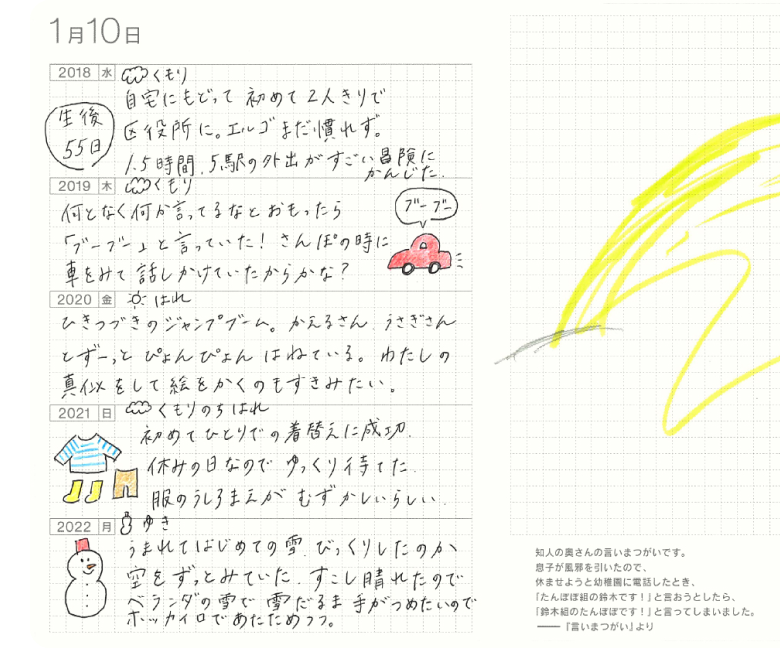 1月10日
2018 水 くもり
生後
55日
自宅にもどって 初めて2人きりで
区役所に。エルゴまだ慣れず。
1.5時間、5駅の外出がすごい冒険に
かんじた.
2019 木 くもり
何となく何か言ってるなとおもったら
「ブーブー」と言っていた! さんぽの時に
車をみて 話しかけていたからかな?
ブーブー
2020 金 はれ
ひきつづきのジャンプブーム。かえるさん、うさぎさん
とずーっと ぴょんぴょん はねている。 わたしの
真似をして 絵をかくのもすきみたい。
2021 日 くもりのち はれ
初めてひとりでの着替えに成功.
休みの日なので ゆっくり待てた.
服のうしろまえが むずかしいらしい.
2022 月 ゆき
うまれてはじめての雪. びっくりしたのか
空をずっとみていた. すこし晴れたので
ベランダの雪で 雪だるま 手がつめたいので
ホッカイロであたためつつ。
知人の奥さんの言いまつがいです。
息子が風邪を引いたので、
休ませようと幼稚園に電話したとき、
「たんぽぽ組の鈴木です!」と言おうとしたら、
「鈴木組のたんぽぽです!」と言ってしまいました。
──『言いまつがい』より